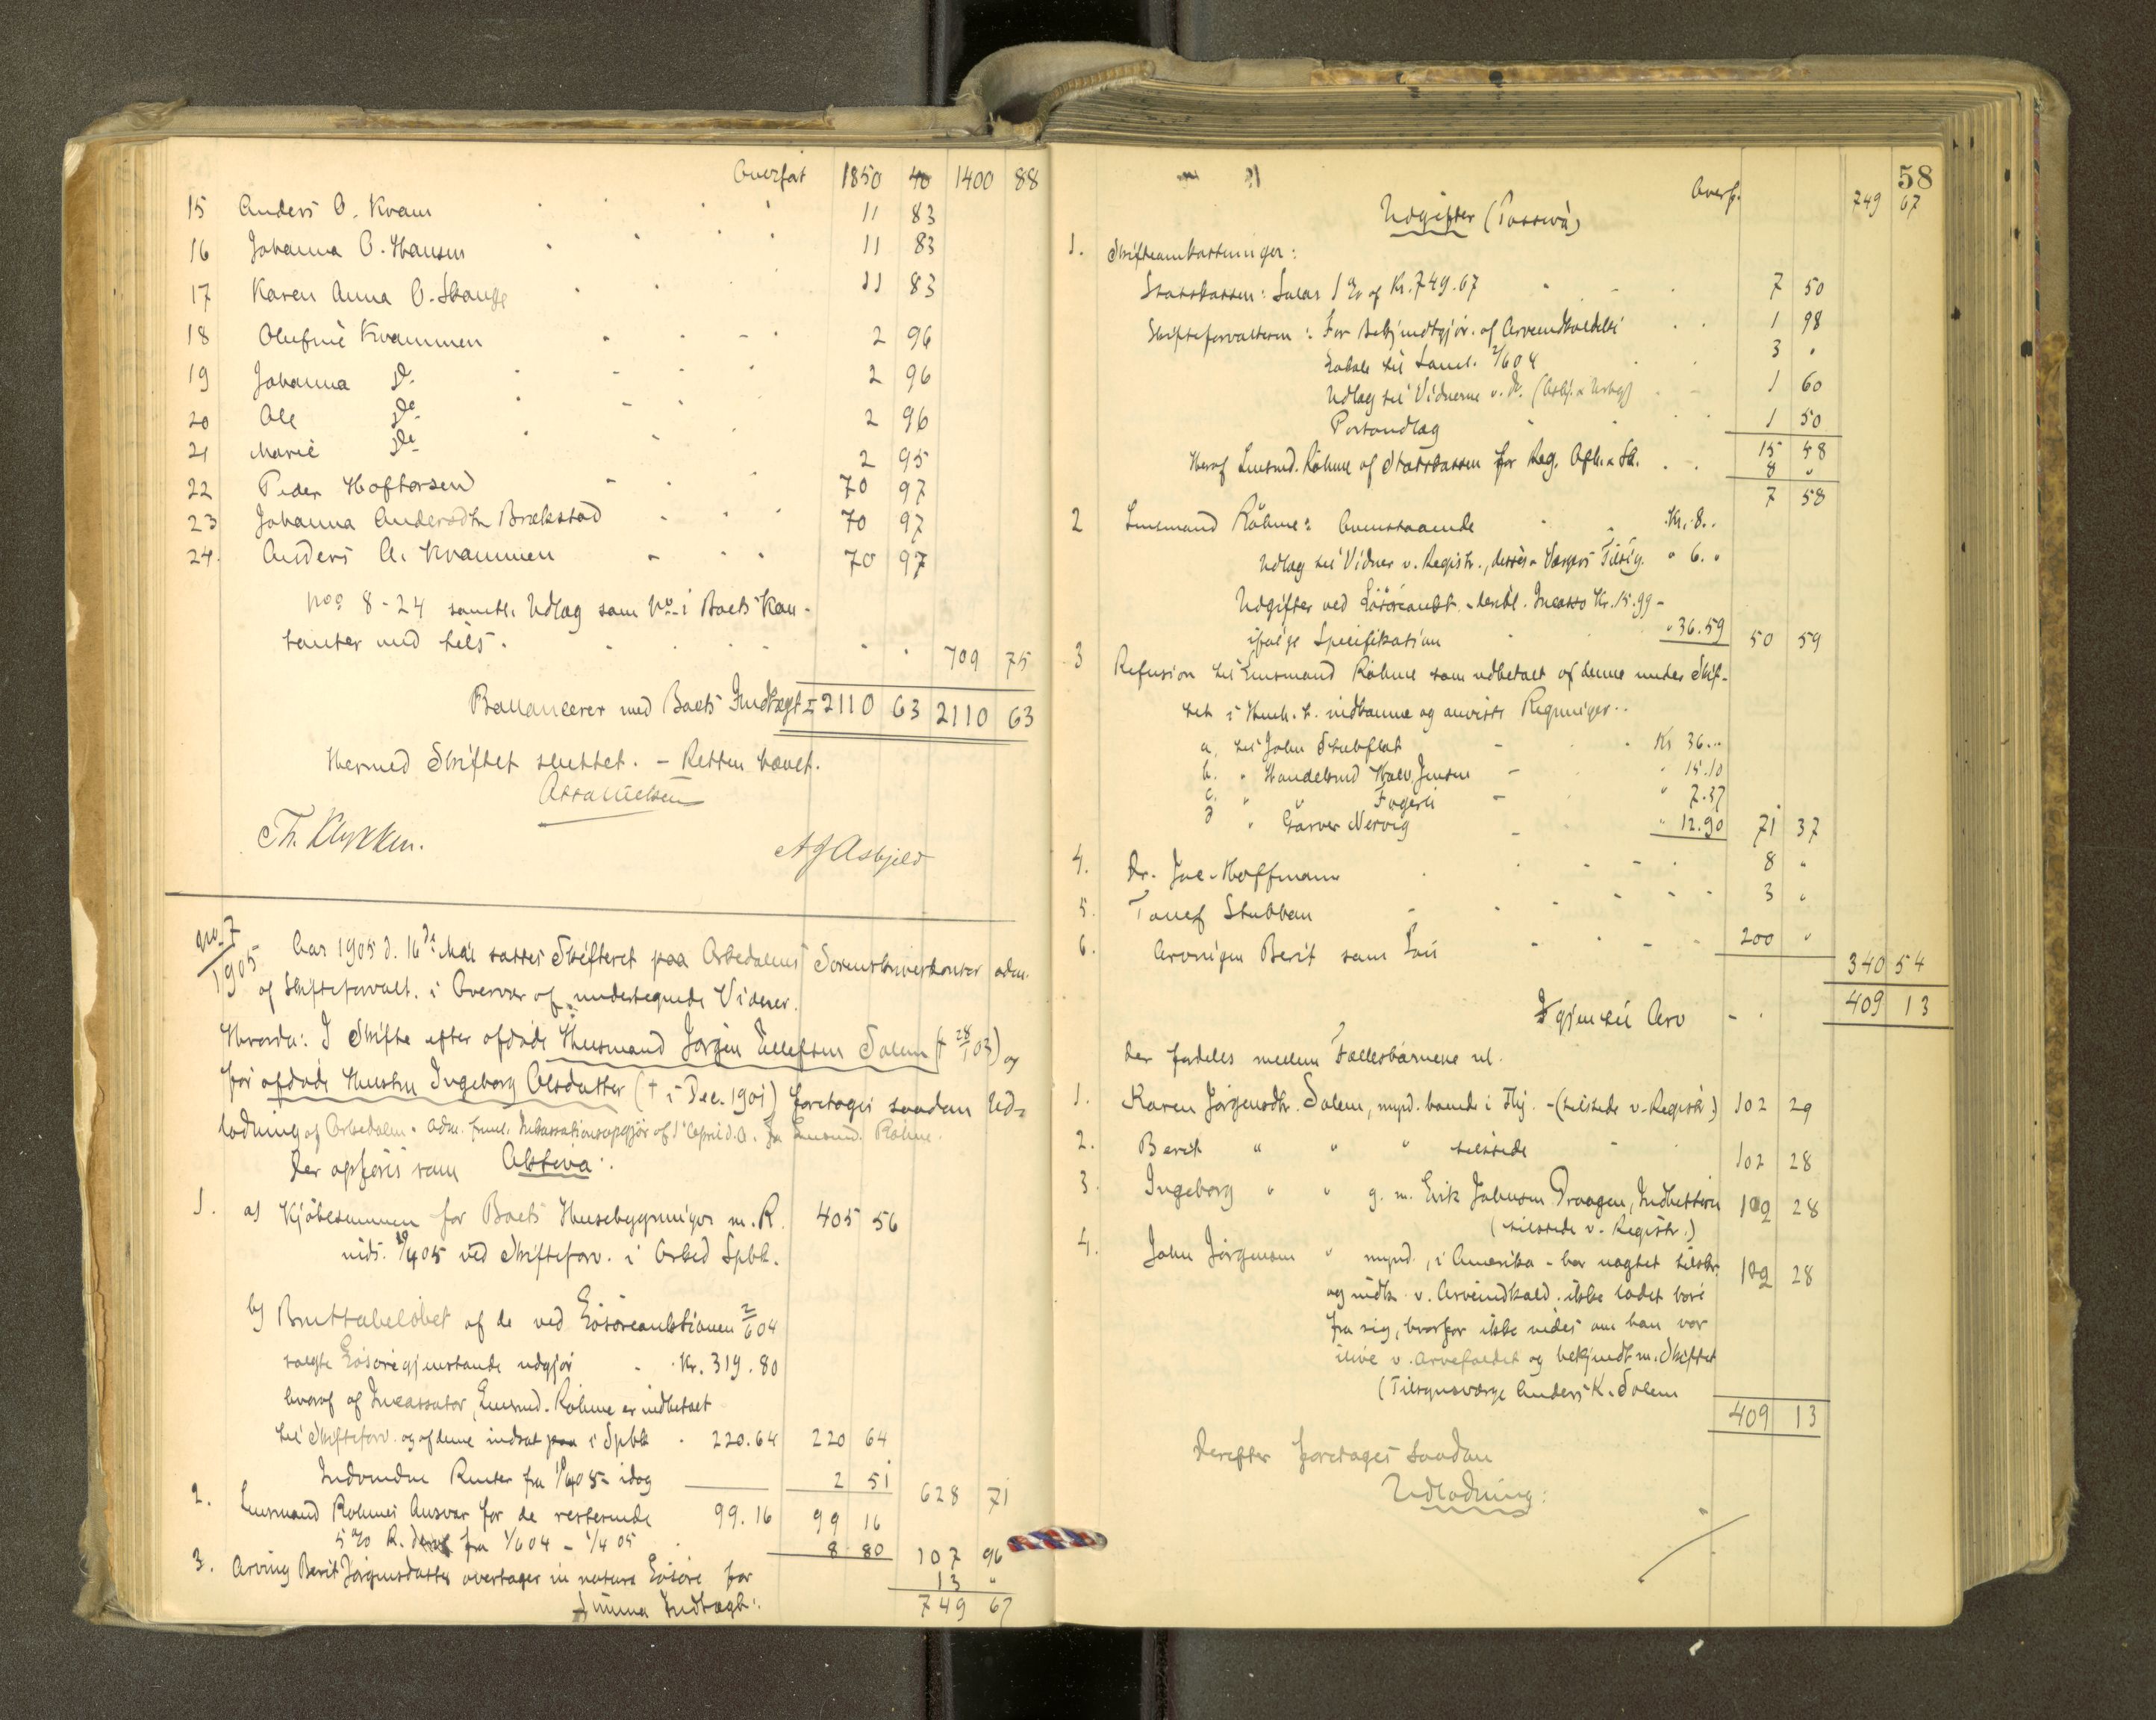 Overført 1850 40 1400 88
15 Anders O. Kvam 11 83
16 Johanna O. Hansen 11 83
17 Karen Anna O. Skauge 11 83
18 Olufine Kvammen 2 96
19 Johanna do. 2 96
20 Ole do. 2 96
21 Marie do. 2 95
22 Peder Hoftorsen 70 97
23 Johanna Andersdtr Brækstad 70 97
24. Anders A. Kvammen 70 97
pos 8-24 samtl. Udlæg som No i Boets Kon-
tanter med tils. 709 75
Ballancerer med Boets Indtægt = 2110 63 2110 63
Hermed Skiftet sluttet. – Retten hævet.
Th. Klykken. A J Asbjell
No. 7
1905
Aar 1905 d. 16de Mai sattes Skifteret paa Orkedalens Sorenskriverkontor adm.
af Skifteforvalt. i Overvær af undertegnede Vidner.
Hvorda: I Skifte efter afdøde Husmand Jørgen Ellefsen Solem († 28/1 03) og
før afdøde Hustru Ingeborg Olsdatter († i Dec. 1901) foretages saadan Ud-
lodning af Orkedalen
Der opføres som Aktiva:
1. a) Kjøbesummen for Boets Husebygninger m. R. 405 56
inds. 19/4 05 ved Skifteforv. i Orked Spbk.
b) Bruttobeløbet af de ved Løsøreauktionen 2/6 04
solgte Løsøregjenstande udgjør Kr. 319.80
hvoraf af Incassator, Lensmd. Röhme er indbetalt
til Skifteforv. og af denne indsat paa i Spbk 220.64 220 64
Indvundne Renter fra 19/4 05 - idag 2 51 628 71
2. Lensmand Röhmes Ansvar for de resterende 99.16 99 16
5 % R. deraf fra 1/6 04 - 1/4 05 8 80 107 96
3. Arving Berit Jørgensdatter overtager in natura Løsøre for 13 "
Summa Indtægt: 749 67
58
Overf. 749 67
Udgifter (Passiva)
1. Skifteomkostninger:
Statskassen: Salær 1 % af Kr. 749.67 7 50
Skifteforvalteren: For Bekjendtgjør. af Arveindkaldelse 1 98
til Saml. 2/6 04 3 "
Udlæg til Vidnerne v. do. 1 60
Portoudlæg 1 50
15 58
Heraf Lensmd. Röhme af Statskassen for Reg. 8 "
7 58
2 Lensmand Röhme: Ovenstaaende Kr. 8..
Udlæg til Vidner v. Registr., " 6. "
Udgifter ved Løsøreaukt. Incasso Kr. 15.99 -
ifølge Specifikation " 36.59 50 59
3 Refusion til Lensmand Röhme som udbetalt af denne under Skif-
tet i Henh. t. indkomne og anviste Regninger..
a, til John Stubflat Kr 36..
b. " Handelsmd Halv. Jensen " 15.10
c. " " Fagerli " 7.37
d " Garver Nervig " 12.90 71 37
4. Dr. Jac. Hoffmann 8 "
5. Tomef Stubban 3 "
6. Arvingen Berit som Løn 200 " 340 54
Igjen til Arv 409 13
der fordeles mellem Fællesbørnene nl.
1. Karen Jørgensdtr. Solem, mynd. boende i Thj. - (tilstede v. Registr.) 102 29
2. Berit " " " tilstede 102 28
3. Ingeborg " " g. m. Erik Johnsen Draagen, 102 28
(tilstede v. Registr.)
4. John Jørgensen " mynd., i Amerika - har uagtet tilskr. 102 28
og indk. v. Arveindkald. ikke ladet høre
fra sig, hvorfor ikke vides om han var
ilive v. arvefaldet og bekjendt m. Skiftet
(Tilsynsværge Anders K. Solem
409 13
Derefter foretages saadan
Udlodning: